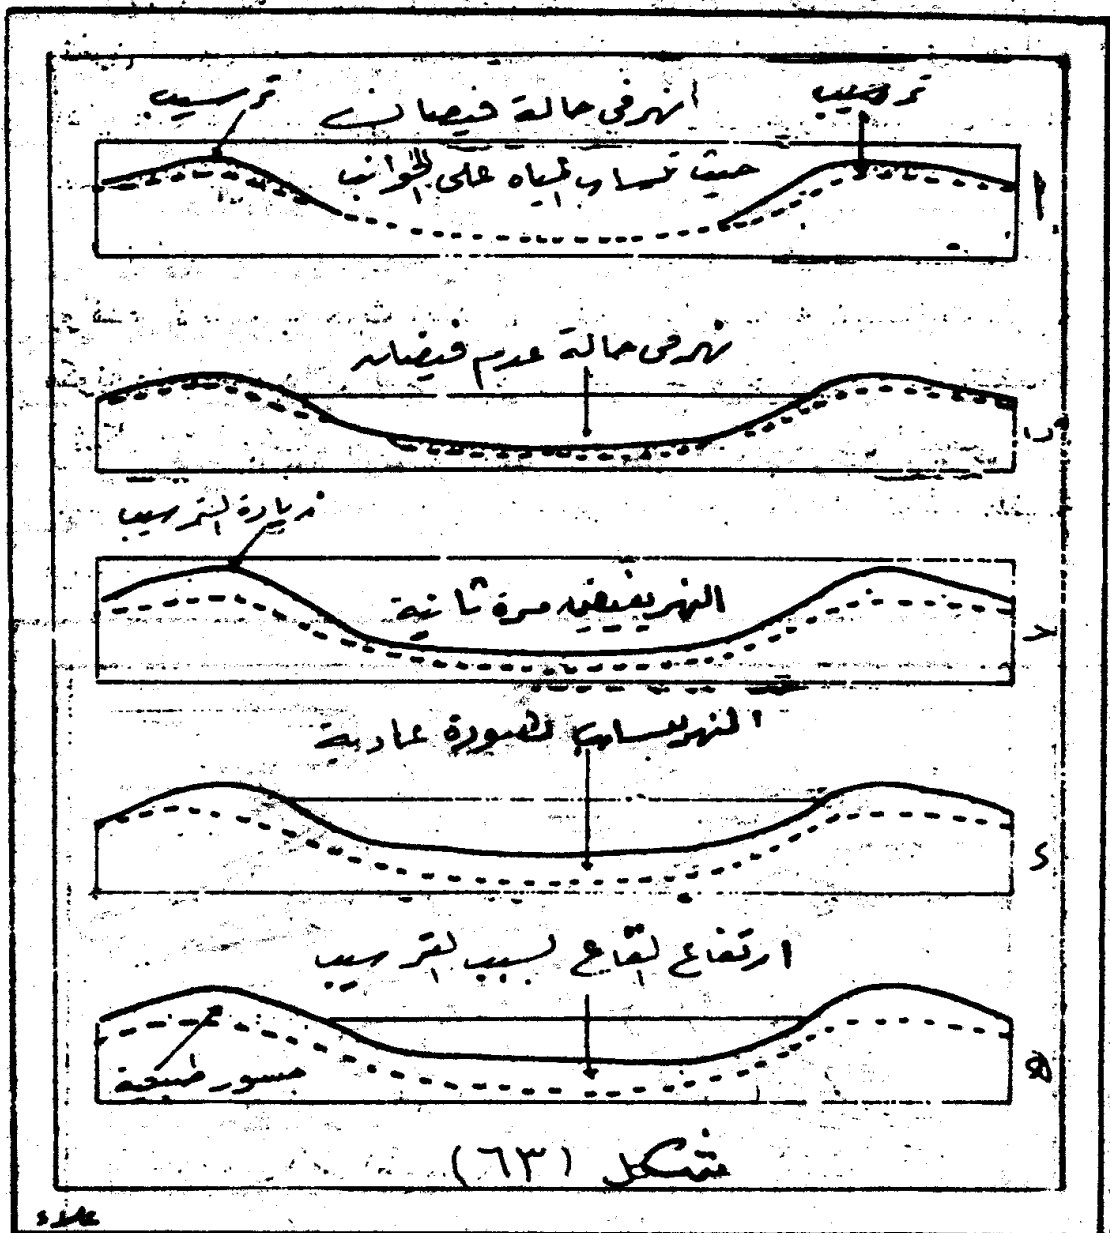 ترسيب
نهر فى حالة فيضان
ترسيب
حيث تنساب المياه على الجوانب
أ
نهر فى حالة عدم فيضان
ب
زيادة الترسيب
النهر يفيض مرة ثانية
ج
النهر ينساب بصورة عادية
د
ارتفاع القاع بسبب الترسيب
جسور طبيعية
ه
شكل (٦٣)
علاء